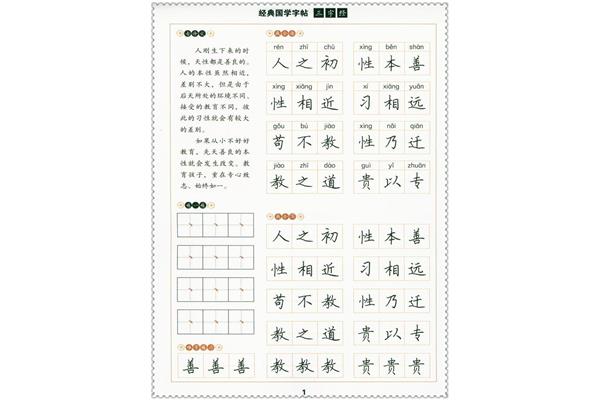 经典国学字帖 三字经
人刚生下来的时
候，天性都是善良的。
人的本性虽然相近，
差别不大，但是由于
后天所处的环境不同、
接受的教育不同，彼
此的习性就会有较大
的差别。
如果从小不好好
教育，先天善良的本
性就会发生改变。教
育孩子，重在专心致
志、始终如一。
rén zhī chū xìng běn shàn
人之初 性本善
xìng xiāng jìn xí xiāng yuǎn
性相近 习相远
gǒu bú jiào xìng nǎi qiān
苟不教 性乃迁
jiào zhī dào guì yǐ zhuān
教之道 贵以专
人之初 性本善
性相近 习相远
苟不教 性乃迁
教之道 贵以专
善善善 教教教 贵贵贵
1